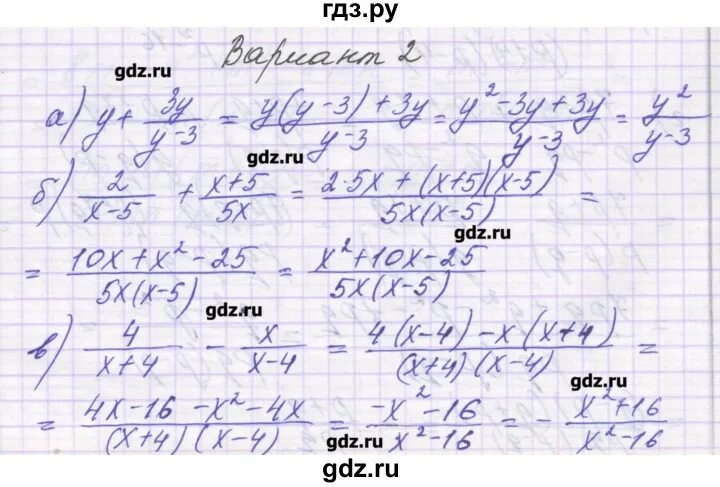 гдз.ру
Вариант 2
gdz.ru
а) y + 3y/(y-3) = (y(y-3)+3y)/(y-3) = (y²-3y+3y)/(y-3) = y²/(y-3)
gdz.ru
б) 2/(x-5) + (x+5)/(5x) = (2·5x+(x+5)(x-5))/(5x(x-5)) =
gdz.ru
= (10x+x²-25)/(5x(x-5)) = (x²+10x-25)/(5x(x-5))
gdz.ru
в) 4/(x+4) - x/(x-4) = (4(x-4)-x(x+4))/((x+4)(x-4)) =
gdz.ru
= (4x-16-x²-4x)/((x+4)(x-4)) = (-x²-16)/(x²-16) = - (x²+16)/(x²-16)
gdz.ru
gdz.ru